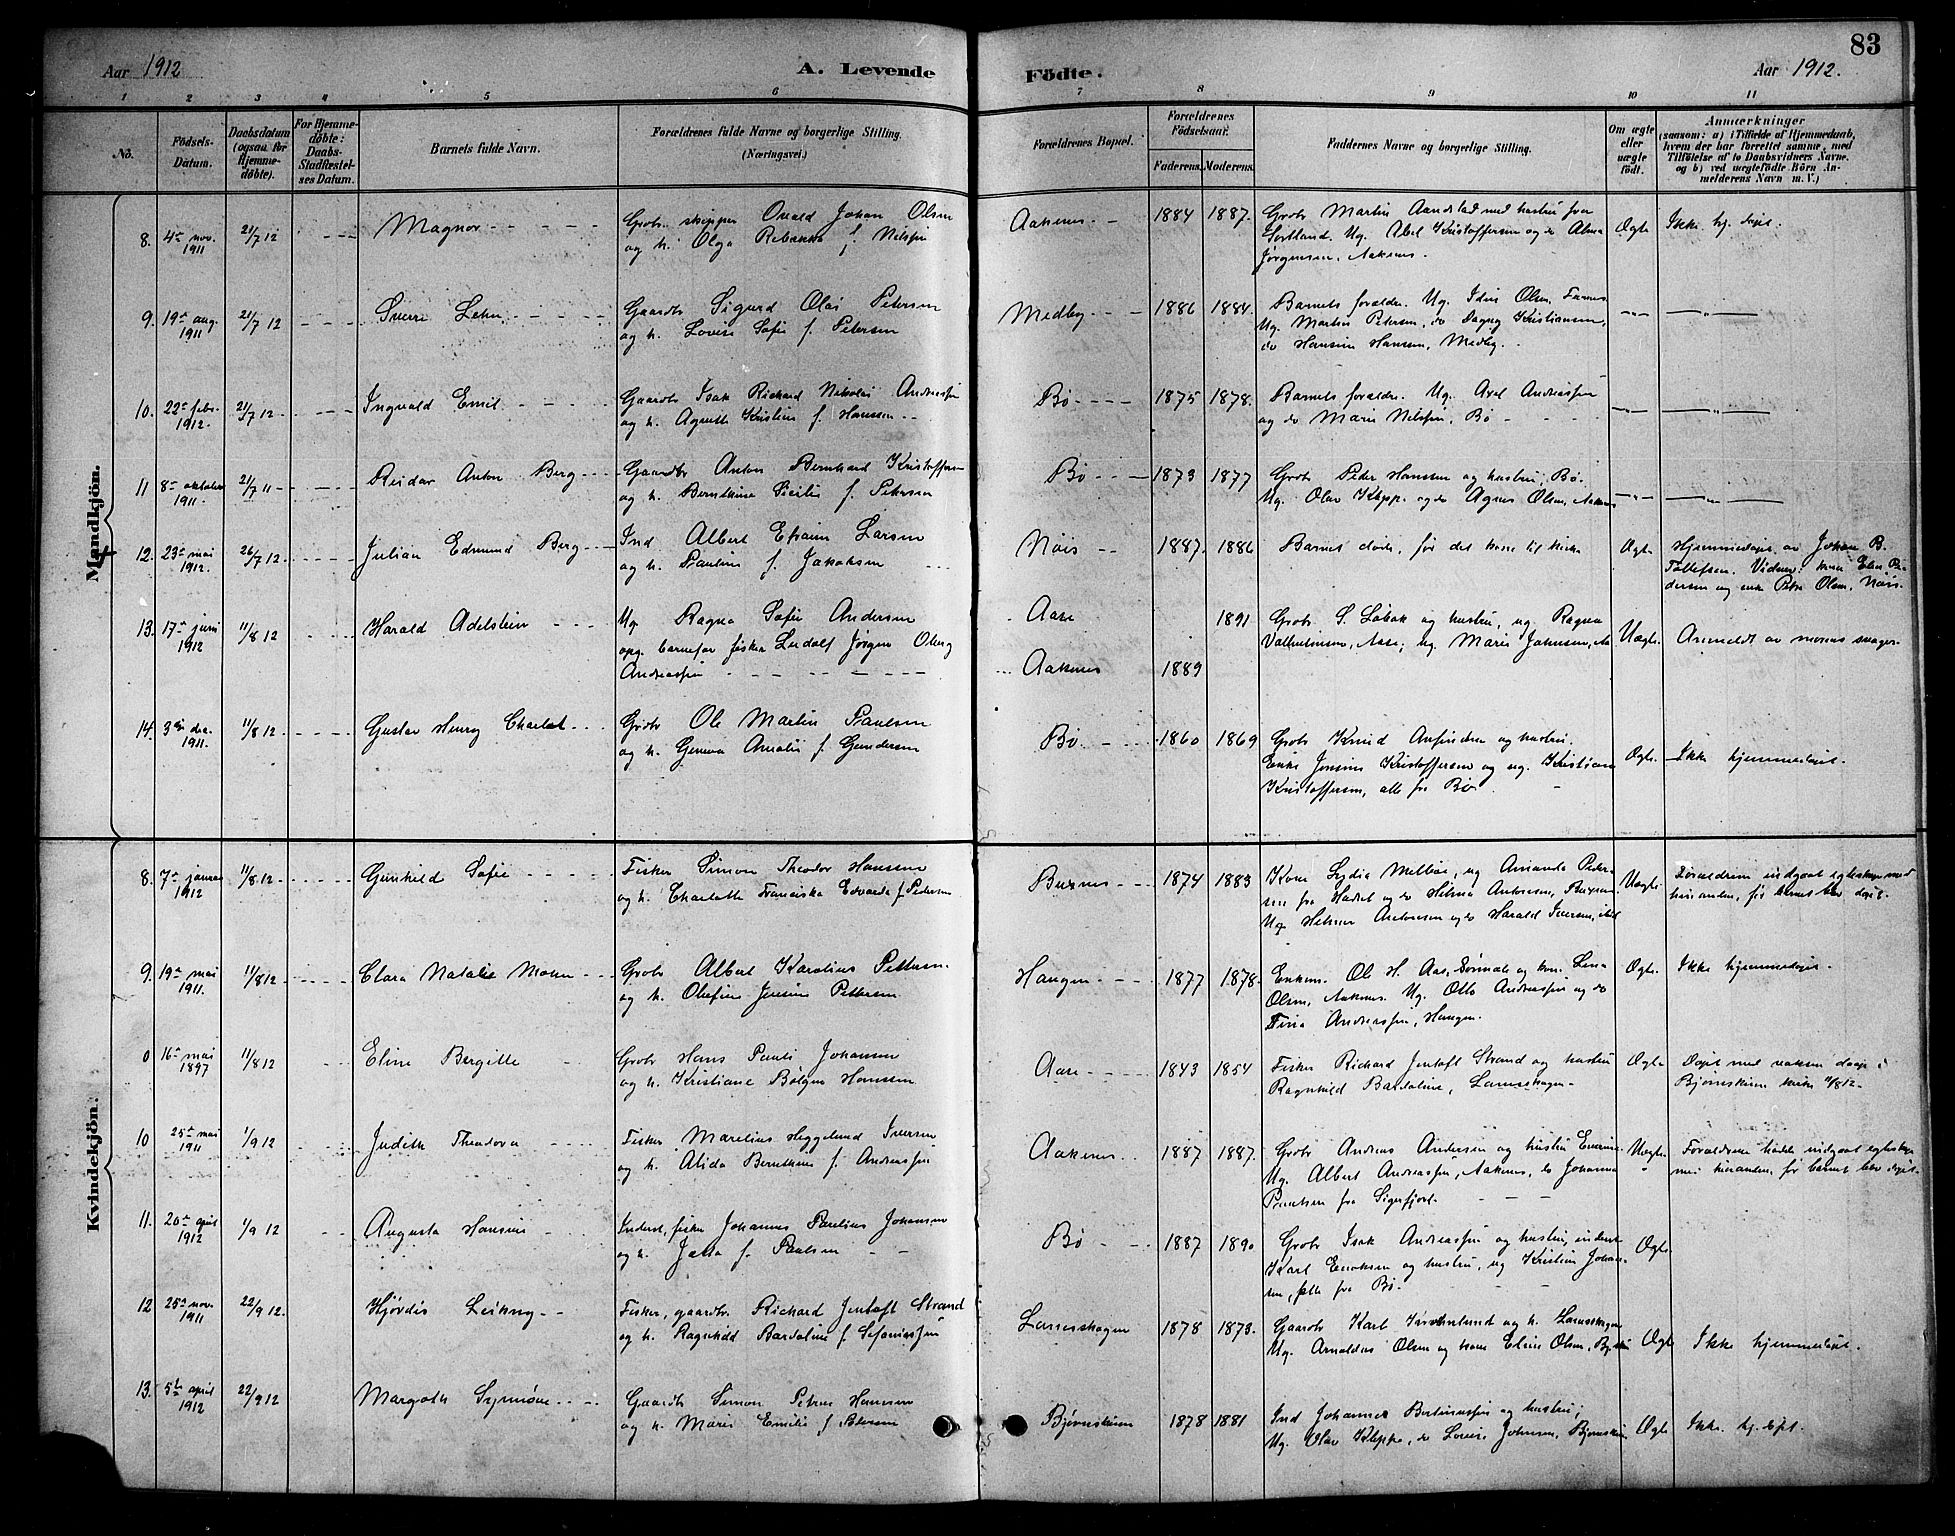 83
Aar 1912
A. Levende
Födte.
Aar 1912.
1 2 3 4 5 6 7 8 9 10 11
No.
Födsels-
Datum.
Daabsdatum
(ogsaa for
Hjemme-
döbte).
For Hjemme-
döbte:
Daabs-
Stadfæstel-
ses Datum.
Barnets fulde Navn.
Forældrenes fulde Navne og borgerlige Stilling.
(Næringsvei.)
Forældrenes Bopæl.
Forældrenes
Födselsaar.
Faderens. Moderens.
Faddernes Navne og borgerlige Stilling.
Om ægte
eller
uægte
födt.
Anmærkninger
(saasom: a) i Tilfælde af Hjemmedaab,
hvem der har forrettet samme, med
Tilföielse af to Daabsvidners Navne.
og b) ved uægtefödte Börn An-
melderens Navn m. V.)
Mandkjön.
8. 4de nov. 1911 21/7 12
Magnor
Grbr. skipper Ovald Johan Olsen
og h. Olga Rebekka f. Nilsen
Aaknes
1884 1887.
Grbr Martin Aandstad med hustru fra
Sortland. Ug. Abel Kristoffersen og do Alma
Jørgensen, Aaknes.
Ægte
Ikke hj. døpt.
9. 19de aug. 1911 21/7 12
Sverre Lehn
Gaardbr Sigurd Olai Petersen
og h. Lovise Sofie f. Petersen
Medby
1886 1884.
Barnets forældre. Ug. Olsen,
Ug. Martin Petersen, do Dagny Kristiansen,
do Hansine Hansen, Medby.
10. 22de febr. 1912. 21/7 12
Ingvald Emil
Gaardbr Isak Richard Nikolai Andreassen
og h. Agnethe Kristine f. Hanssen
Bø
1875 1878.
Barnets forældre. Ug. Axel Andreassen
og do Marie Nilssen, Bø
11 8de oktober 1911. 21/7 11
Reidar Anton Berg
Gaardbr Anton Bernhard Kristoffersen
og h. Berntine Sicilie f. Petersen
Bø
1873 1877
Grbr Peder Hanssen og hustru, Bø.
Ug. Olav Klepp. og do Agnes Olsen, Aaknes
12. 23de mai 1912. 26/7 12
Julian Edmund Berg
Ind Albert Efraim Larsen
og h. Pauline f. Jakobsen
Nøis
1887. 1886
Barnet døde, før det kom til kirke
Ægte
Hjemmedøpt av Johan B.
Tollefsen. Vidner: kone Elen Pe-
dersen og enke Olsen, Nøis.
13. 17de juni 1912 11/8 12
Harald Adelstein
Ug. Ragna Sofie Andersen
opg. barnefar fisker Ludolf Jørgen Oberg
Andreassen
Aase
Aaknes
1891
1889
Grbr S. Løbak og hustru, ug. Ragna
Aase; ug. Marie Johnsen,
Uægte
Anmeldt av morens svoger.
14. 3die dec. 1911. 11/8 12
Gustav Henry Charlot
Grbr Ole Martin Paulsen
og h. Geneva Amalie f. Gundersen
Bø.
1860 1869
Grbr Knud Anfindsen og hustru.
Enke Jensine Kristoffersen og ug. Kristiane
Kristoffersen, alle fra Bø.
Ægte.
Ikke hjemmedøpt.
Kvindekjön.
8. 7de januar 1912 11/8 12
Gunhild Sofie
Fisker Simon Theodor Hanssen
og h. Charlotte Franciska Edvarda f. Petersen
Buknes
1874 1883
Kone Lydia Melbøe, ug Amanda Peter-
sen fra Hadsel og do Helma Antonsen,
Ug Helmer Antonsen og do Harald Iversen, ibid
Uægte
Forældrene indgaat egteskap med
hinanden, før barnet blev døpt.
9. 19de mai 1911. 11/8 12
Clara Natalie Mohn
Grbr Albert Karolius Pettersen.
og h. Olefine Jensine Pettersen
Haugen
1877 1878.
Enkem. Ol H. Aas, og kone Lina
Olsen, Aaknes. Ug. Otto Andreassen og do
Tina Andreassen, Haugen.
Ægte.
Ikke hjemmedøpt.
0 16de mai 1897 11/8 12
Eline Bergitte
Grbr Hans Pauli Johansen
og h. Kristiane Bolgen Hanssen
Aase
1843 1854
Fisker Richard Jentoft Strand og hustru
Ragnhild Bardoline, Lanesskogen
Ægte
Døpt med voksen daap i
Bjørnskinn kirke 11/8 12.
10 25de mai 1911 1/9 12
Judith Theodora
Fisker Marelius Heggelund Iversen
og h. Alida Bernthine f. Andreassen
Aaknes.
1887 1887.
Grbr Andreas Andersen og hustru
Ug. Albert Andreassen, Aaknes, do Johanna
Paulsen fra Sigerfjord.
Uægte
Forældrene hadde indgaat egteskap
med hinanden før barnet blev døpt.
11. 20de april 1912 1/9 12
Augusta Hansine
Inderst, fisker Johannes Paulius Johansen
og h. Jetta f. Paulsen
Bø
1887 1890
Grbr Isak Andreassen og hustru, inderst
Karl Enoksen og hustru, ug Kristine Johan-
sen, alle fra Bø.
Ægte.
12 25de nov. 1911 22/9 12.
Hjørdis Leikny
Fisker, gaardbr. Richard Jentoft Strand
og h. Ragnhild Bardoline f. Sefaniassen
Lanesskogen
1878 1878.
Gaardbr Karl og h. Lanesskogen
Ug. Arnoldus Olsen og kone Elise Olsen,
Ægte
Ikke hjemmedøpt.
13. 5te april 1912 22/9 12
Margoth Synnøve
Gaardbr Simon Petrus Hanssen
og h. Marie Emilie f. Petersen
Bjørnskinn
1878 1881
Ind Johannes Bertinussen og hustru;
Ug. Olav Kleppe, do Lovise Johnsen, Bjørnskinn
Ægte
Ikke hj. døpt.